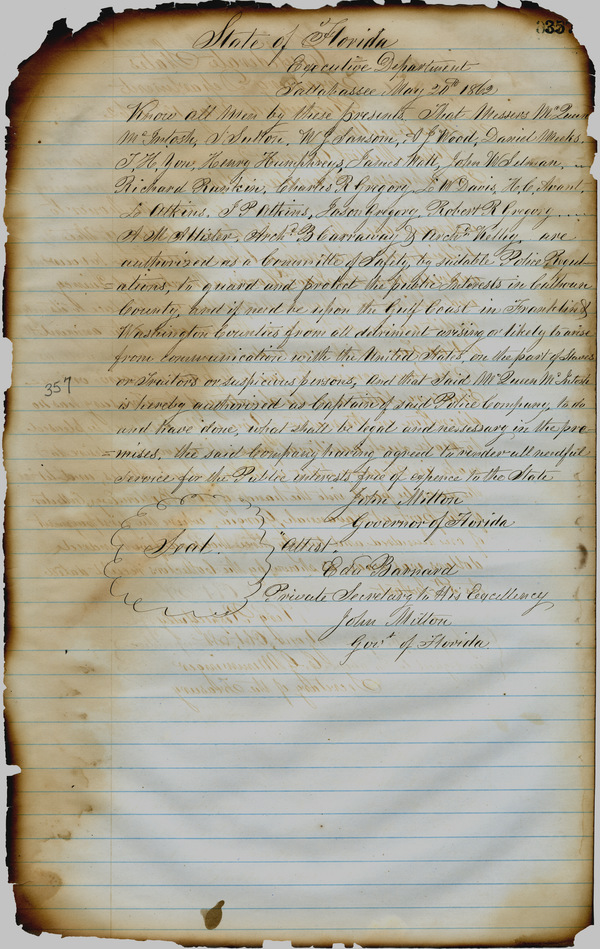 335
State of Florida
Executive Department
Tallahassee May 20th 1862
Know all Men by these presents, That Messers McQueen
McIntosh, S. Sutton, W J Sansom, A J Wood, Daniel Meeks,
T. H. Yon, Henry Humphreys, James Watt, John W
Richard Rankin, Charles R Gregory, L. W Davis, H. C, Avant
L. Atkins, J P Atkins, Jason Gregory, Robert R Gregory
A. M Allister, Archd B Carraway & Archd Kelley are
authorized as a Committe of Safety, by suitable Police Regul-
=ations, to guard and protect the public Interests in Calhoun
County, and if need be upon the Gulf Coast in Franklin &
Washington Counties from all detriment arising or likely to arise
from communication with the United States, on the part of slaves
or Traitors or suspicious persons, And that said McQueen McIntosh
357
is hereby authorized as Captain of said Police Company, to do
and have done, what shall be legal and nesessary in the pre-
=mises, the said Company having agreed to render all needful
service for the Public interests free of expence to the State
John Milton
Governor of Florida
Seal.
Attest.
Edwd Barnard
Private Secretary to His Excellency
John Milton
Govr of Florida